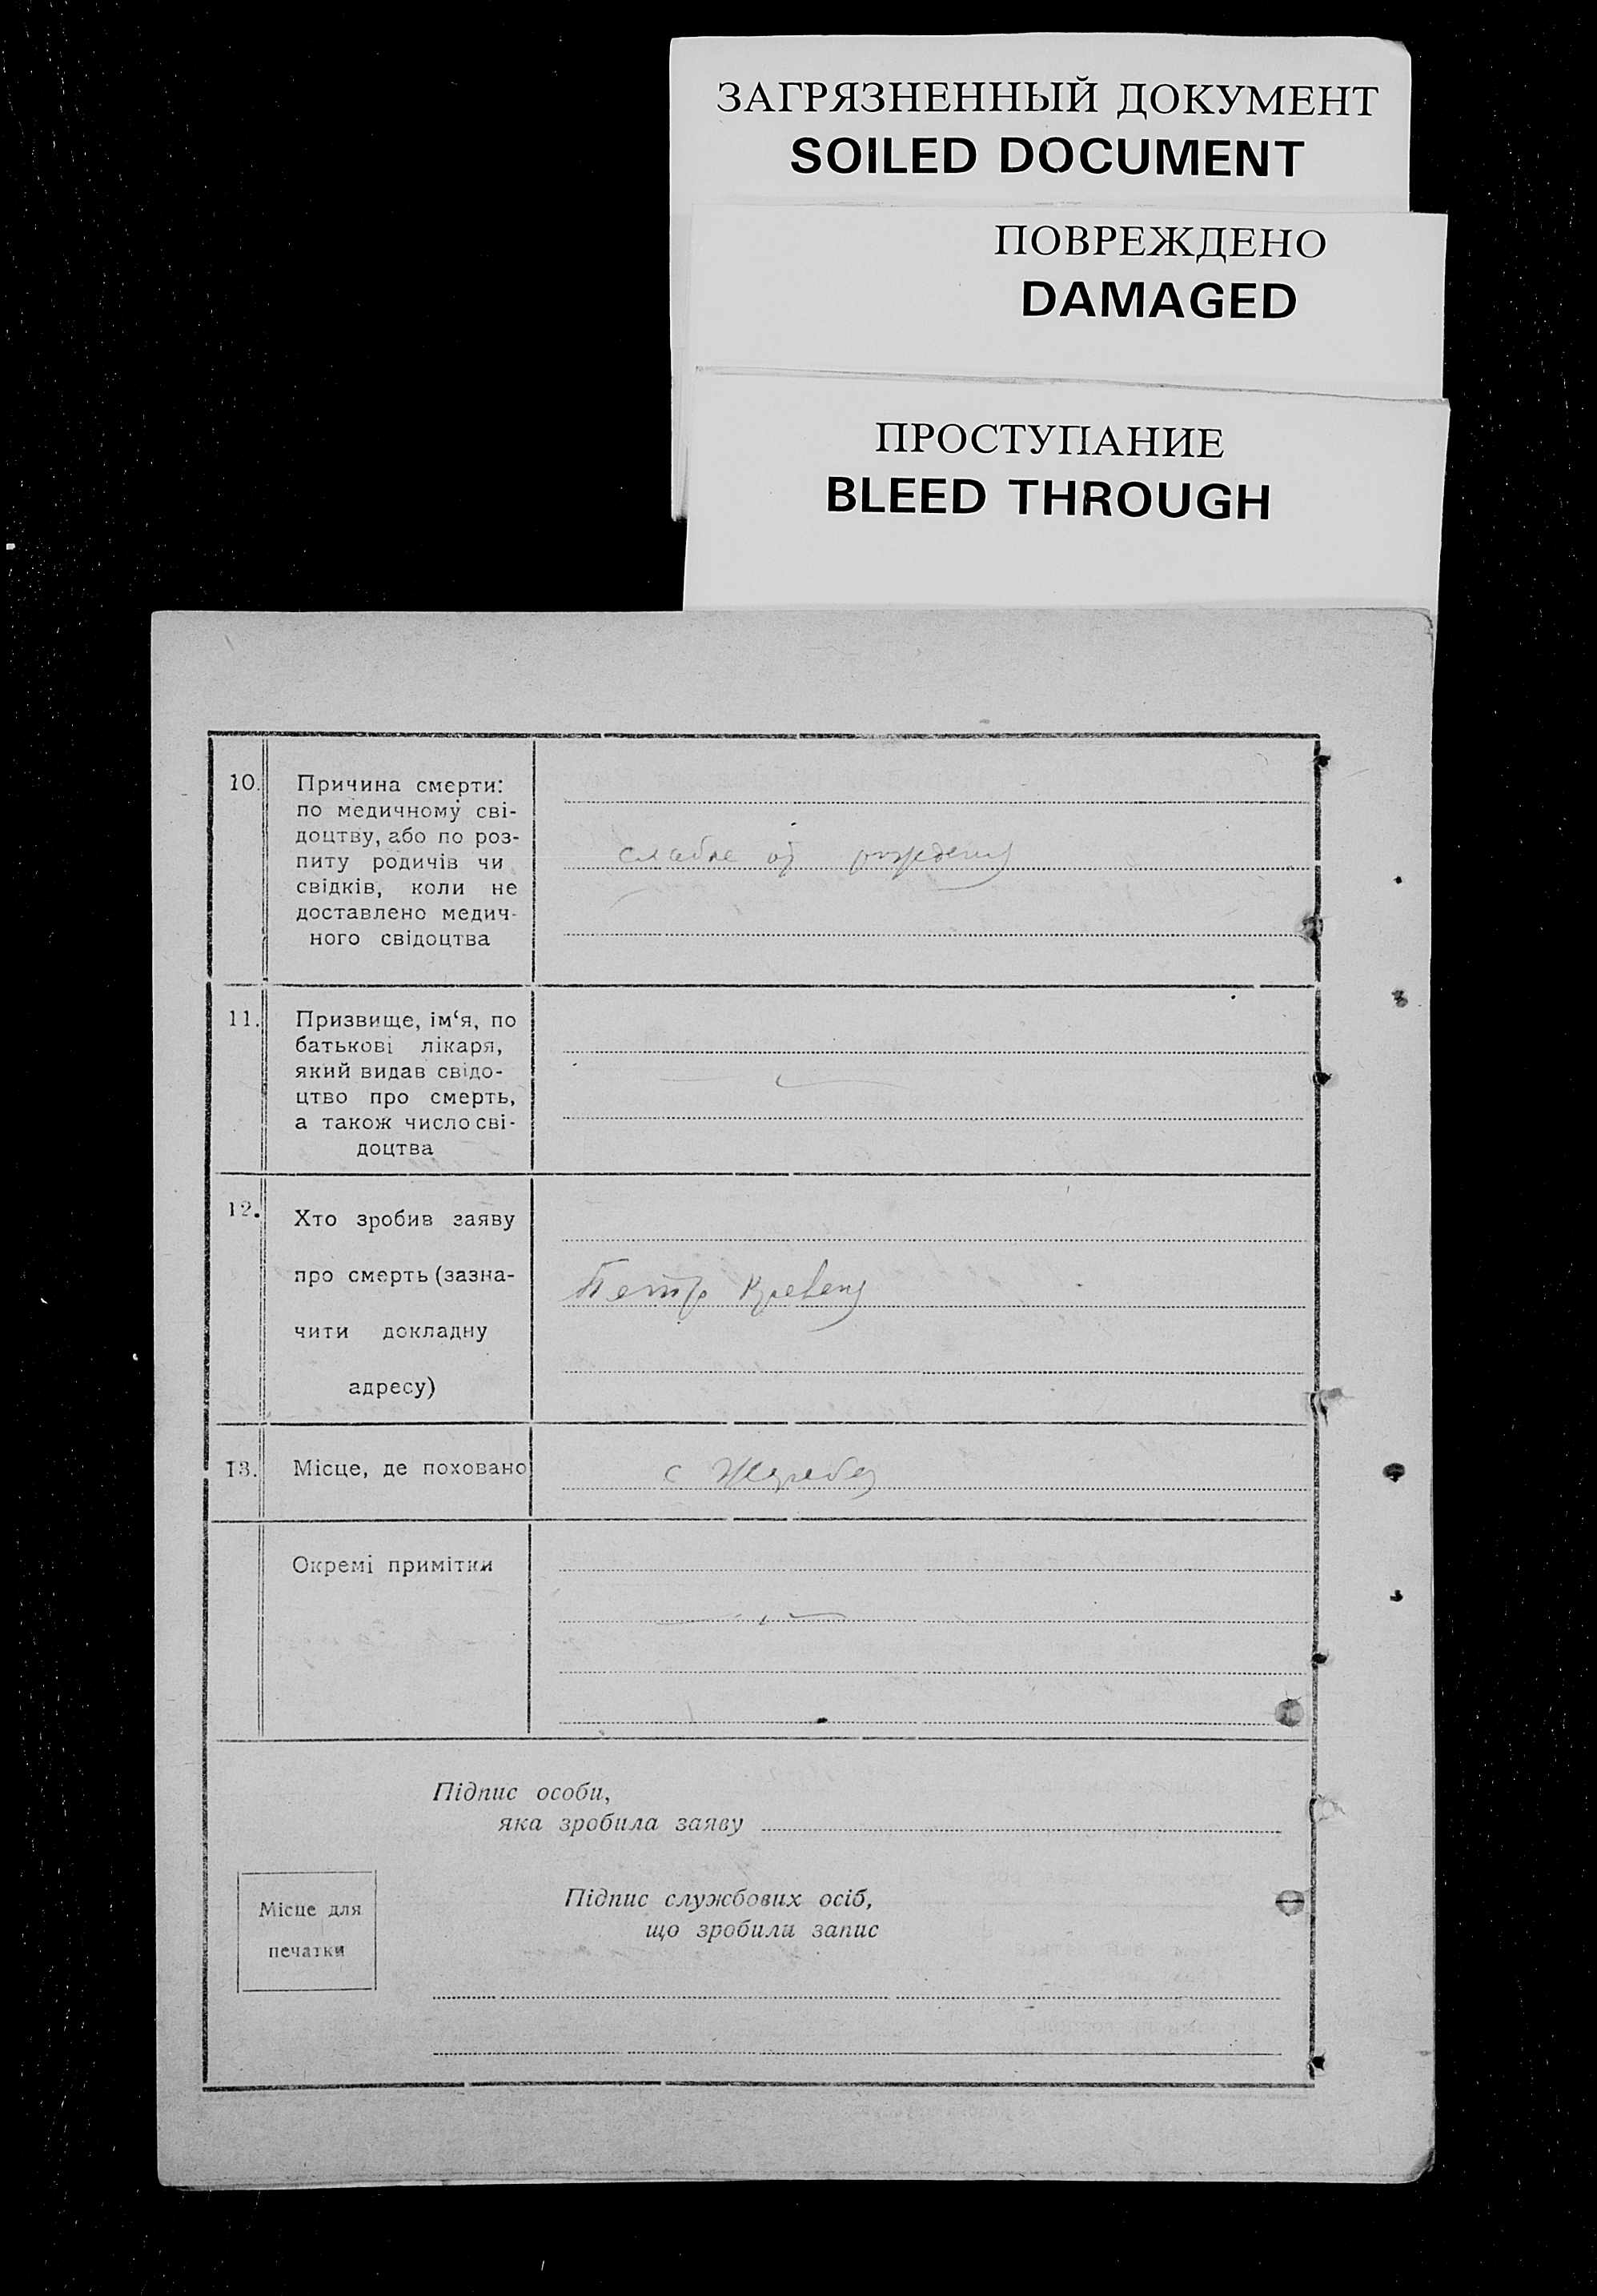 ЗАГРЯЗНЕННЫЙ ДОКУМЕНТ
SOILED DOCUMENT
ПОВРЕЖДЕНО
DAMAGED
ПРОСТУПАНИЕ
BLEED THROUGH
10. Причина смерти:
по медичному сві-
доцтву, або по роз-
питу родичів чи
свідків, коли не
доставлено медич-
ного свідоцтва
слабе від
11. Призвище, ім‘я, по
батькові лікаря,
який видав свідо-
цтво про смерть,
а також число сві-
доцтва
12. Хто зробив заяву
про смерть (зазна-
чити докладну
адресу)
Петр
13. Місце, де поховано
с Жеребец
Окремі примітки
Підпис особи,
яка зробила заяву
Місце для
печатки
Підпис службових осіб,
що зробили запис